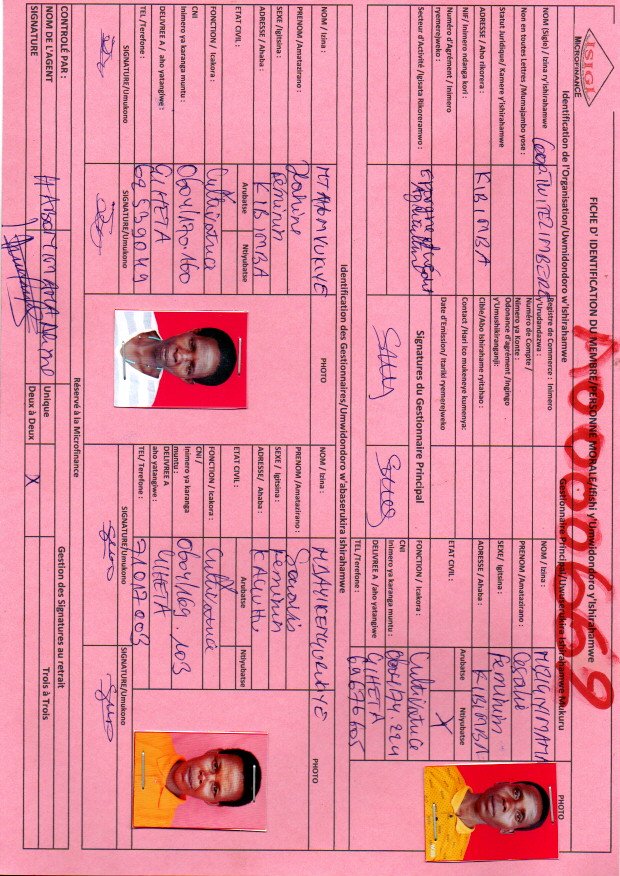 ISIGI
MICROFINANCE
FICHE D' IDENTIFICATION DU MEMBRE/PERSONNE MORALE/Ifishi y'Umwidondoro y'Ishirahamwe
Identification de l'Organisation/Uwmidondoro w'Ishirahamwe
Gestionnaire Principal/Uwuserukira Ishirahamwe Mukuru
NOM (Sigle) / Izina ry'ishirahamwe
Non en toutes Lettres /Mumajambo yose :
Statut Juridique/ Kamere y'ishirahamwe
ADRESSE / Aho rikorera :
KIBIMBA
NIF/ Inimero ndanga kori :
Numéro d'Agrément / Inimero
ryemerejweko :
Secteur d'Activité /Igisata Rikoreramwo :
Registre de Commerce : Inimero
y'Urudandazwa :
Numéro de Compte /
Nimero ya Konte :
Odonance d'agrément /Ingingo
y'Umushikiranganji:
Cible/Abo Ishirahame ryitahao :
Contact /Itari Ico mukeneye kumenya:
Date d'Emission/ Itariki ryemerejweko
Signatures du Gestionnaire Principal
NOM / Izina :
PRENOM /Amatazirano :
SEXE/ Igitsina :
Feminin
ADRESSE / Ahaba :
KIBIMBA
ETAT CIVIL :
Arubatse
Ntiyubatse
X
FONCTION / Icakora :
Cultivatrice
CNI
Inimero ya karanga muntu :
DELIVREE A / aho yatangiwe
GIHETA
TEL /Terefone :
PHOTO
Identification des Gestionnaires/Umwidondoro w'abaserukira ishirahamwe
NOM / Izina :
NTAHOMVUKIYE
PRENOM /Amatazirano :
SEXE /Igitsina :
Feminin
ADRESSE / Ahaba :
KIBIMBA
ETAT CIVIL :
Arubatse
Ntiyubatse
FONCTION / Icakora :
Cultivatrice
CNI
Inimero ya karanga muntu :
0604/190.160
DELIVREE A / aho yatangiwe :
GIHETA
TEL /Terefone :
SIGNATURE/Umukono
SIGNATURE/Umukono
PHOTO
NOM / Izina :
PRENOM /Amatazirano :
SEXE / Igitsina :
Feminin
ADRESSE/ Ahaba :
ETAT CIVIL :
Arubatse
Ntiyubatse
FONCTION / Icakora :
Cultivatrice
CNI /
Inimero ya karanga
muntu :
0604/169.103
DELIVREE A
aho yatangiwe:
GIHETA
TEL/ Terefone :
SIGNATURE/Umukono
SIGNATURE/Umukono
PHOTO
Réservé à la Microfinance
CONTROLÉ PAR :
NOM DE L'AGENT
SIGNATURE
Gestion des Signatures au retrait
Unique
Deux à Deux
X
Trois à Trois